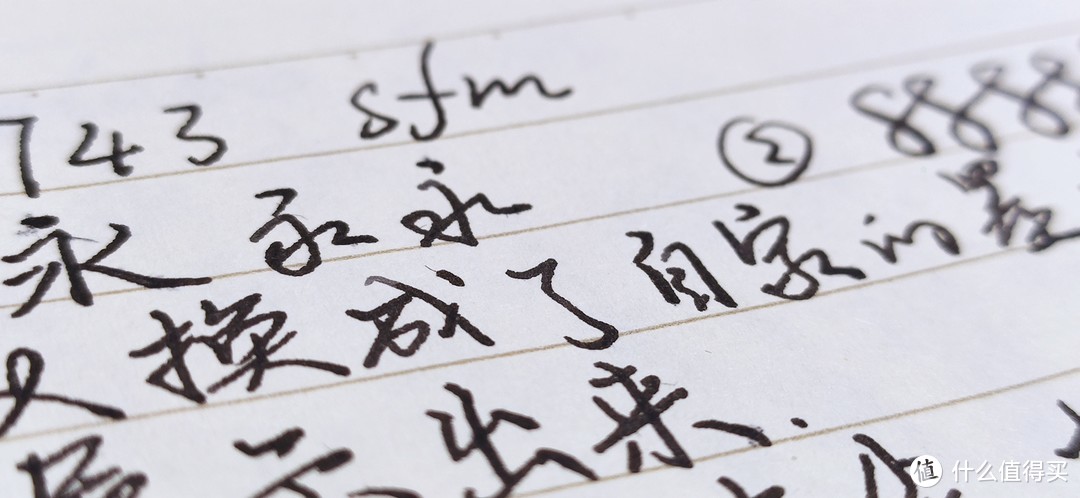 743 sfm ② 888
永 永 永
又换成了自家的
出来.
值 什么值得买